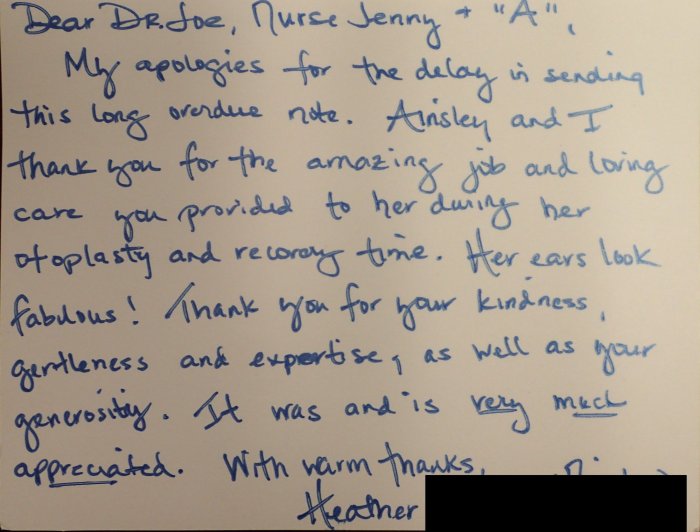 Dear Dr. Joe, Nurse Jenny + "A",
My apologies for the delay in sending
this long overdue note. Ainsley and I
thank you for the amazing job and loving
care you provided to her during her
otoplasty and recovery time. Her ears look
fabulous! Thank you for your kindness,
gentleness and expertise, as well as your
generosity. It was and is very much
appreciated. With warm thanks,
Heather